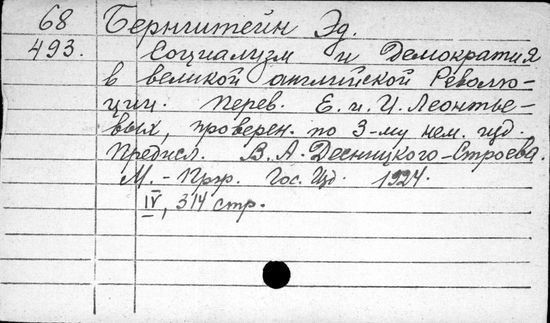 68 Бернштейн Эд.
493. Социализм и Демократия
в великой английской Револю-
ции. Перев. Е. и И. Леонтье-
вых, проверен. по 3-му нем. изд.
Предисл. В. А. Десницкого-Строева.
М. - Пгр. Гос. Изд. 1924.
IV, 314 стр.